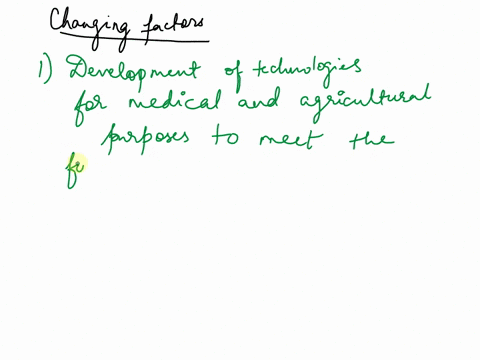 Changing factors
1) Development of technologies
for medical and agricultural
purposes to meet the